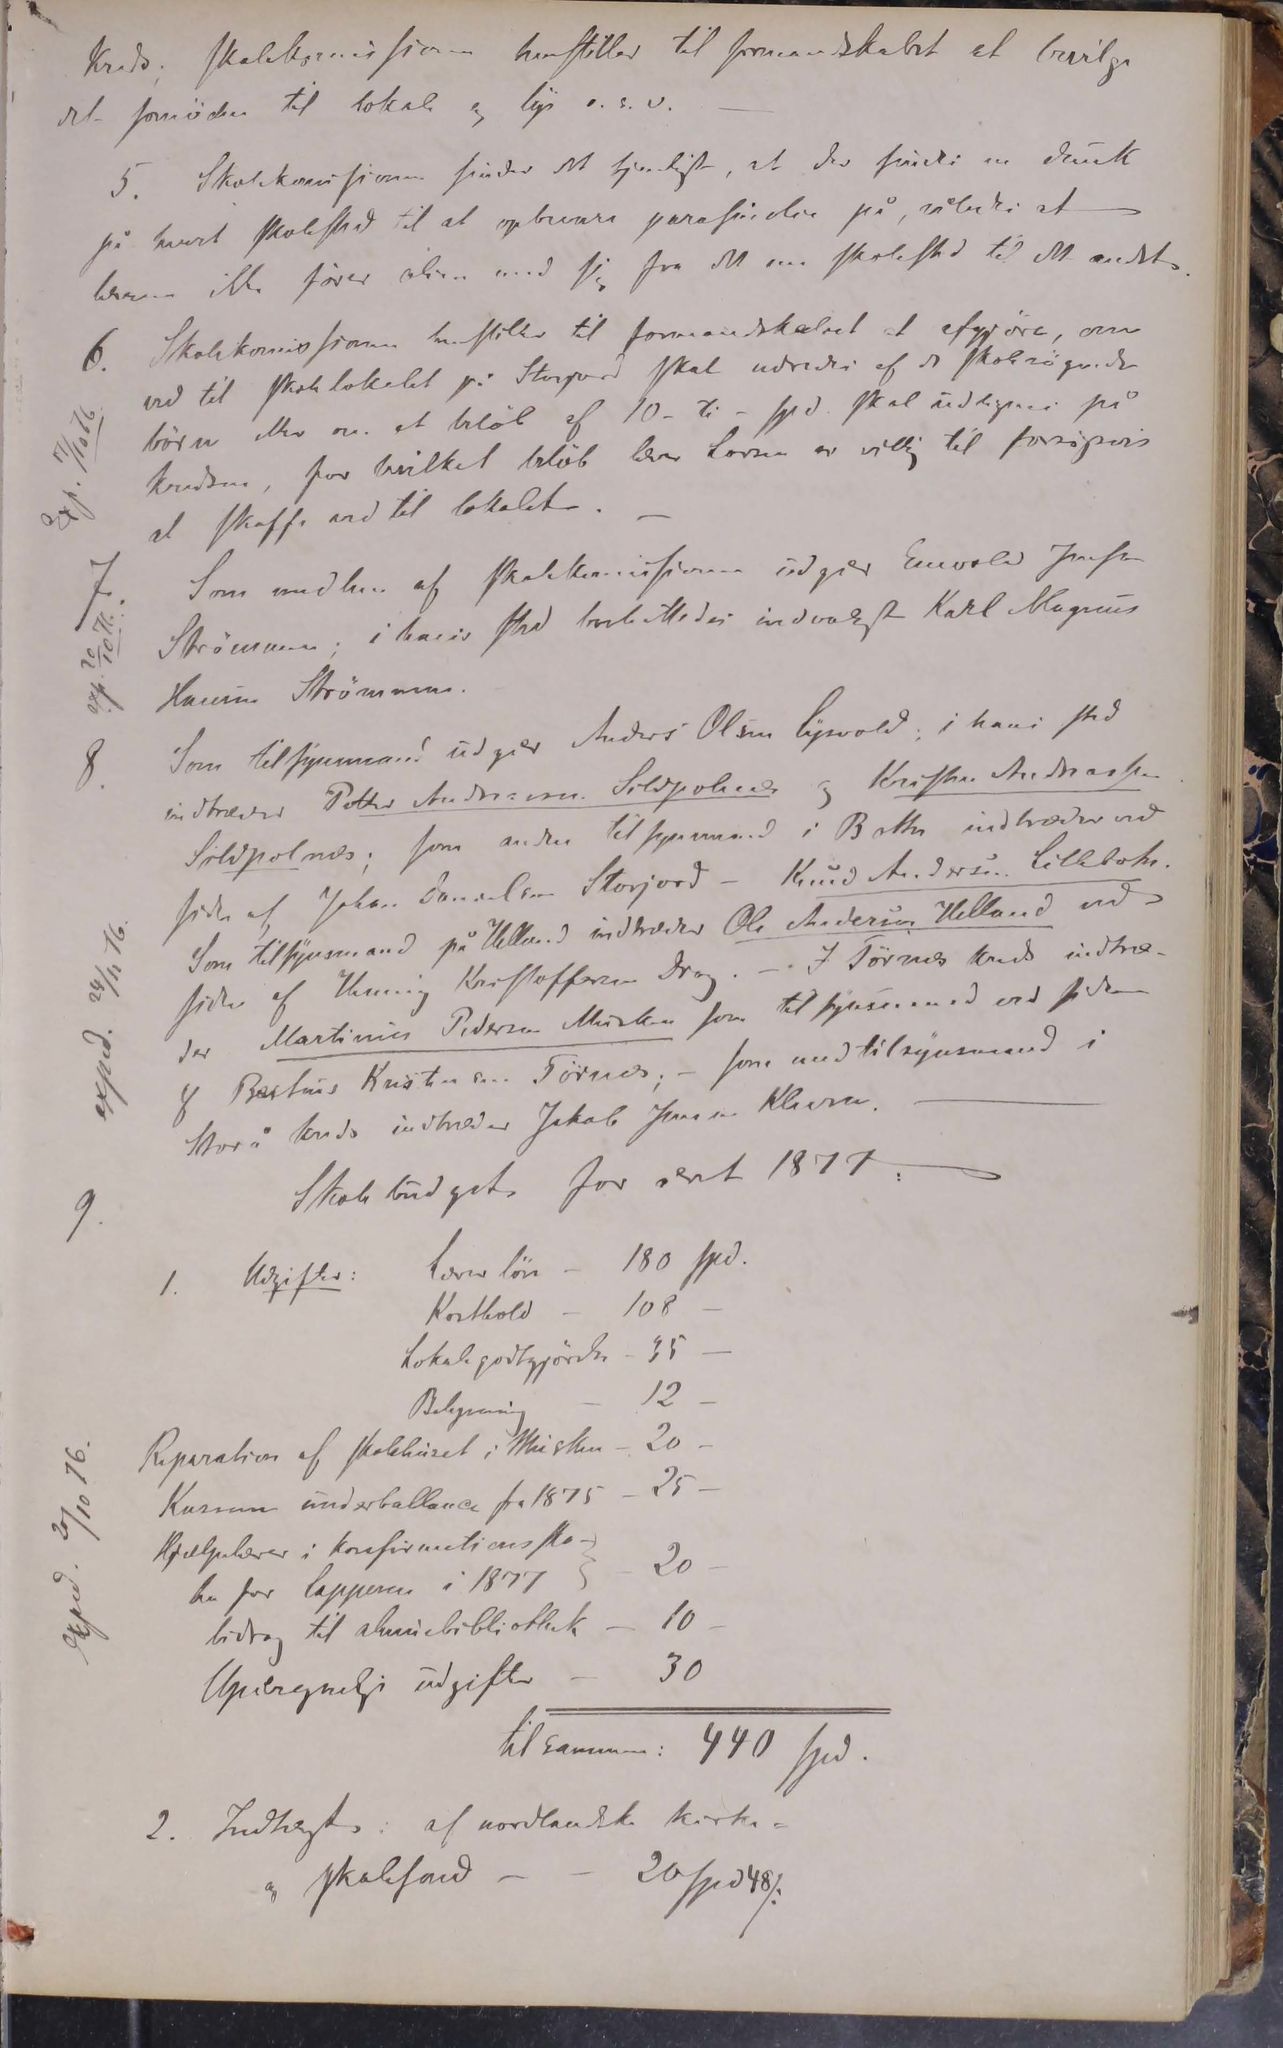 Kreds; skolekommissionen henstiller til formandskabet at bevilge
det fornödne til lokale og lys o.s.v. —
5. Skolekomissionen finder det tjenligst, at der findes en
på hvert skolested til at opbevare på, således at
læreren ikke förer med sig fra det ene skolested til det andet.
6. Skolekomissionen henstiller til formandskabet at afgjöre, om
ved til skolelokalet på Storjord skal udredes af de skolesögende
börn eller om et belöb af 10 - ti - spd. skal udlignes på
kredsen, for hvilket belöb lærer Larsen er villig til forsögsvis
at skaffe ved til lokalet. —
exp. 7/10 76.
7. Som medlem af skolekomissionen udgår Enevold Jensen
Strömmen; i hans sted indvalgt Karl Magnus
Hansen Strömmen.
exp. 20/10 76.
8. Som tilsynsmand udgår Anders Olsen Lysvold; i hans sted
indtræder Petter Andreassen Sildpolnes og Kristen Andreassen
Sildpolnes; som anden tilsynsmand i indtræder ved
siden af Johan Danielsen Storjord - Knud Andersen
Som tilsynsmand på Helland indtræder Ole Andersen Helland ved
siden af Henning Kristoffersen Drag. — I Törnes kreds indtræ-
der Martinus Pedersen Musken som tilsynsmand ved siden
af Kristensen Törnes; - som medtilsynsmand i
Storå kreds indtræder Jakob Jensen
exped. 24/11 76.
9. Skolebudget for året 1877:
1. Udgifter: Lærerlön - 180 spd.
Kosthold - 108 -
Lokalegodtgjörelse - 35 -
Belysning - 12 -
Reparation af skolehuset i Musken - 20 -
Kassens underballance fra 1875 - 25 -
Hjælpelærer i konfirmationssko-
len for lapperne i 1877 - 20 -
bidrag til almuebibliothek - 10 -
Upåregnelige udgifter - 30
tilsammen: 440 spd.
exped. 20/10 76.
2. Indtægt: af nordlandske kirke-
og skolefond - - 20 spd 48 s: